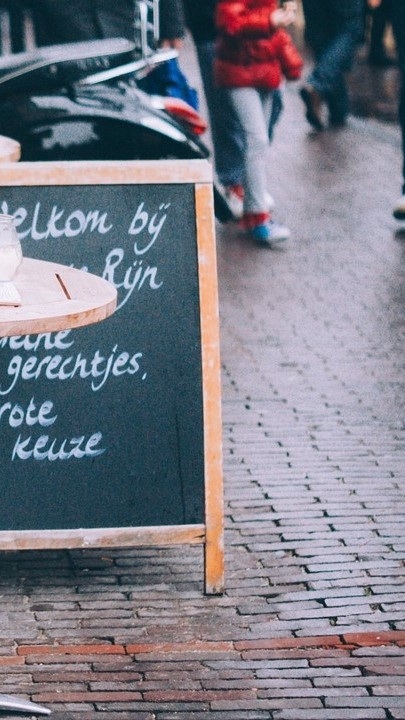 elkom bij
Rijn
gerechtjes,
rote
keuze